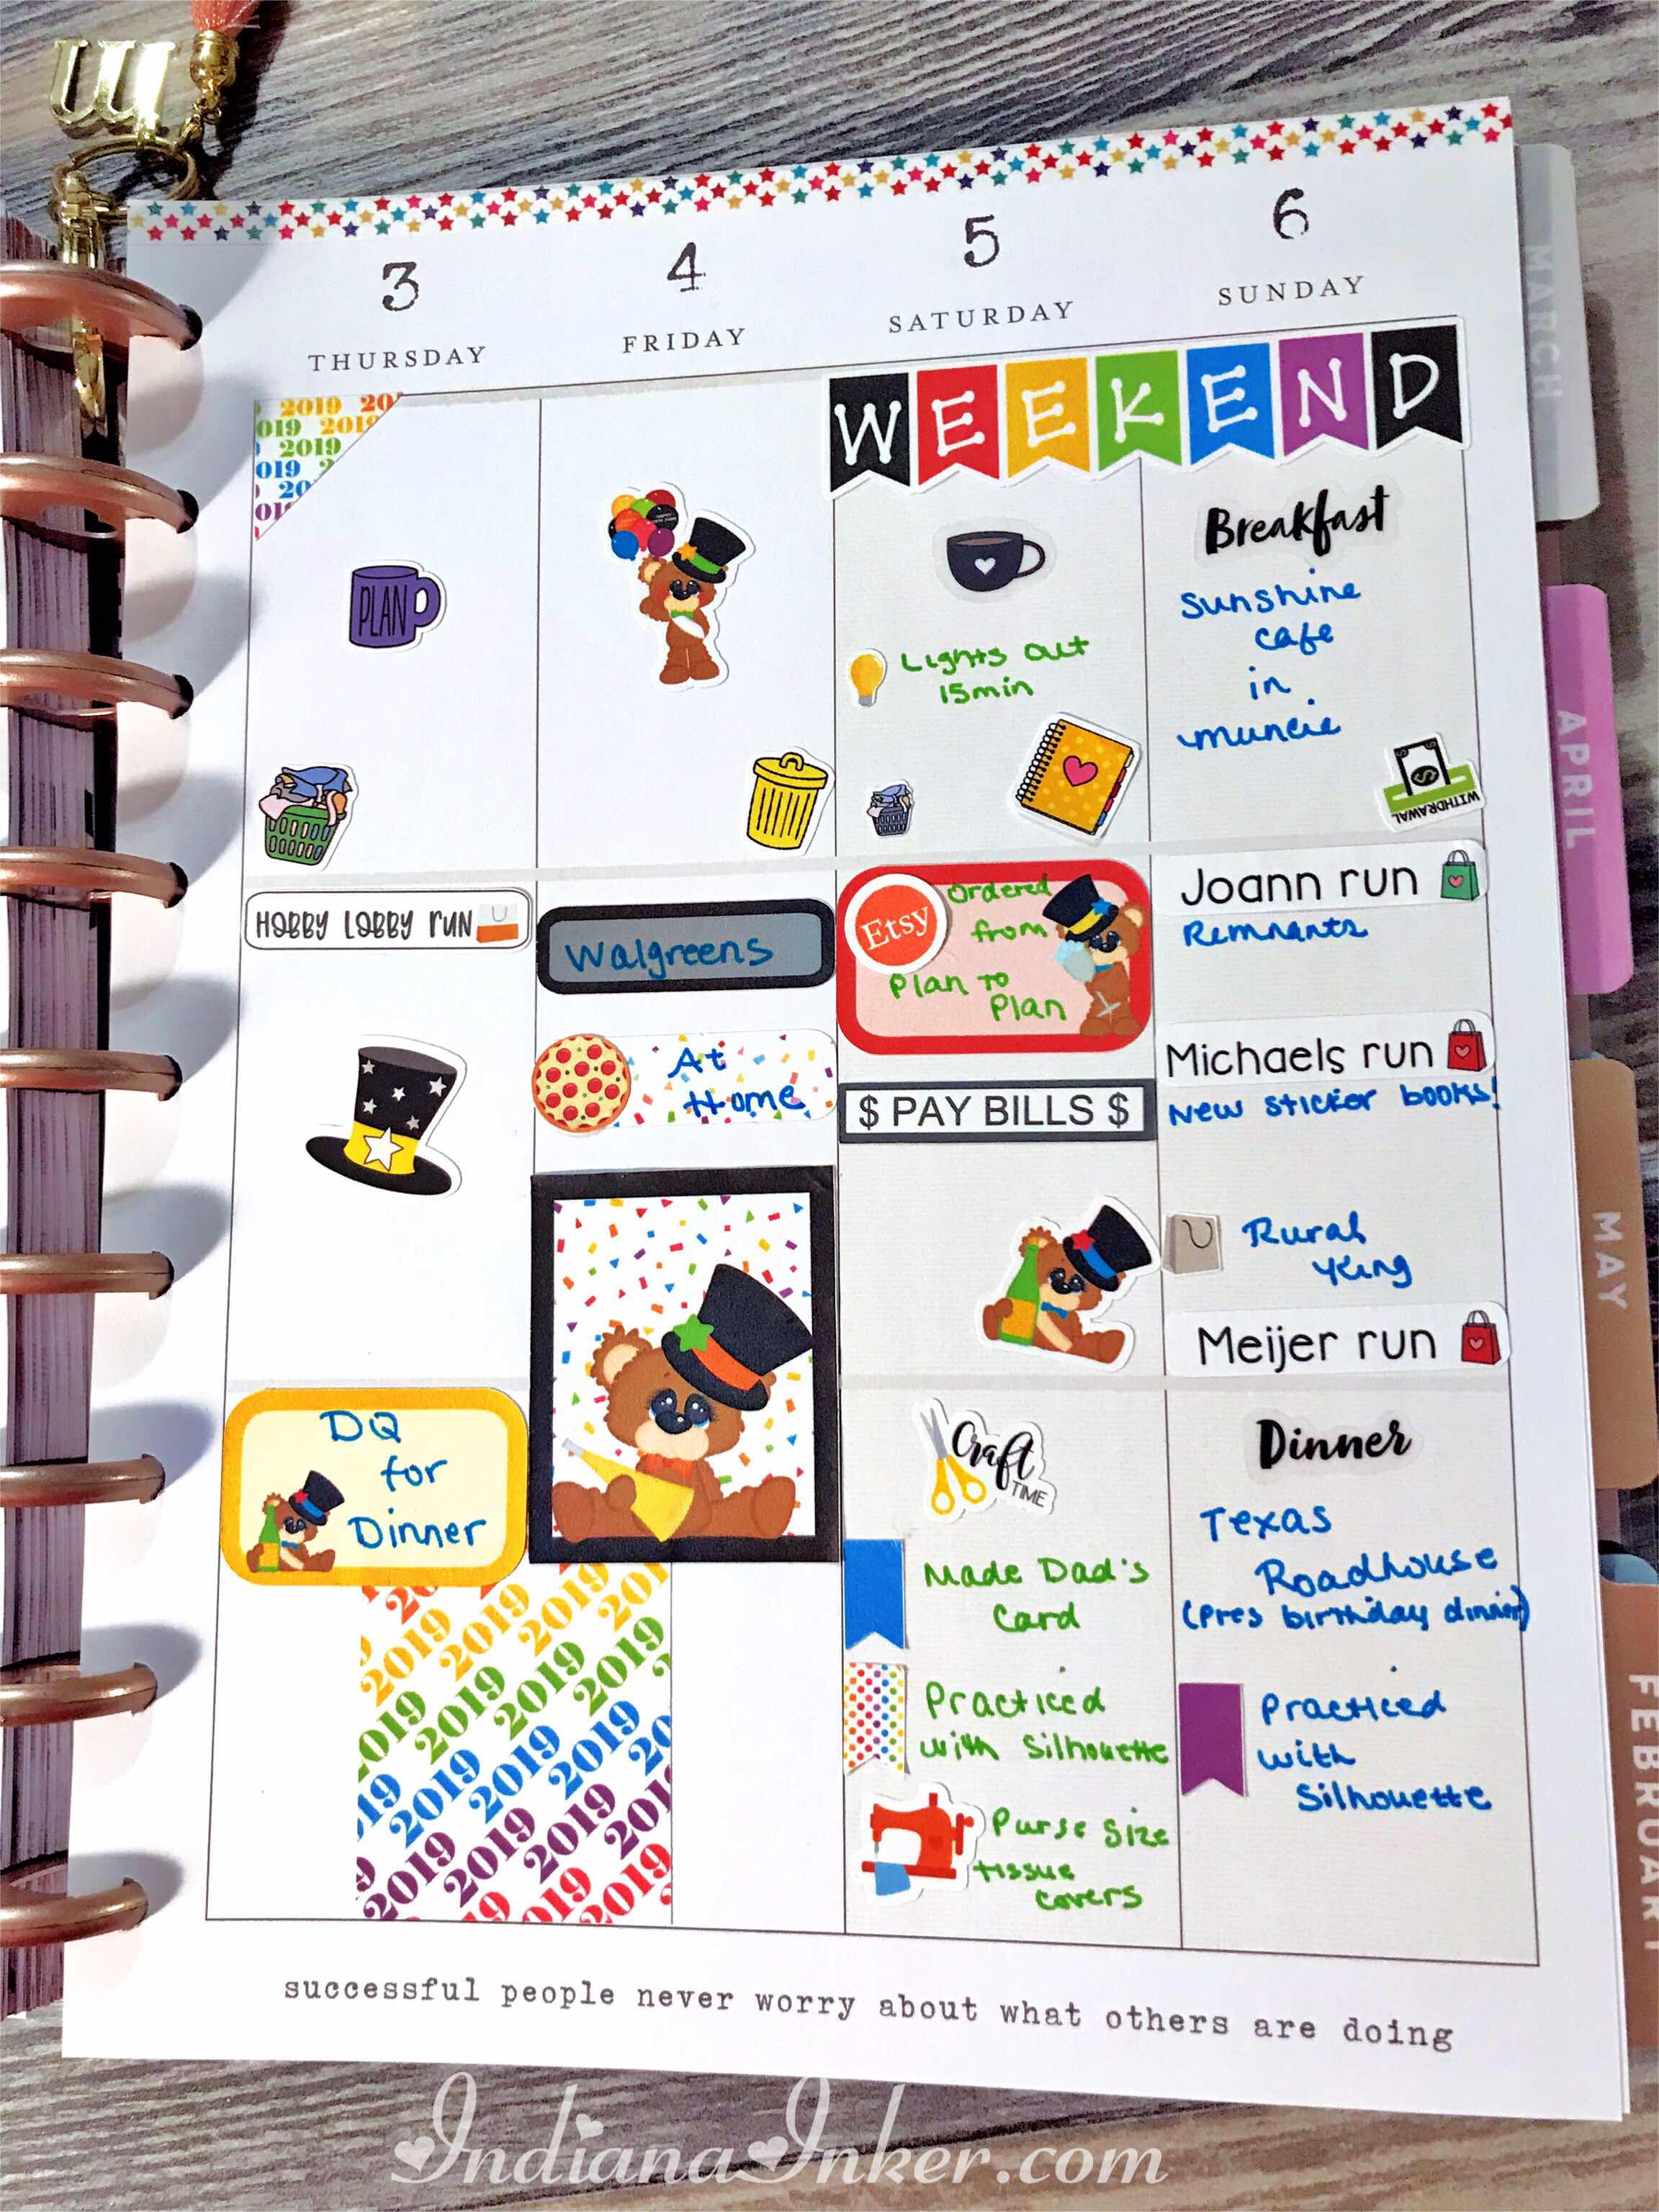 3
THURSDAY
4
FRIDAY
5
SATURDAY
6
SUNDAY
WEEKEND
2019 20
019 2019
2019
019 2
20
PLAN
HOBBY LOBBY RUN
DQ
for
Dinner
Walgreens
At
Home
2019 2019 2019
2019 2019 2019
2019 2019 2019
2019 2019 2019
Lights out
15min
Etsy
Ordered
from
Plan to
Plan
$ PAY BILLS $
Craft
TIME
Made Dad's
Card
Practiced
with Silhouette
Purse Size
tissue
covers
Breakfast
Sunshine
cafe
in
muncie
WITHDRAWAL
Joann run
Remnants
Michaels run
New sticker books!
Rural
King
Meijer run
Dinner
Texas
Roadhouse
(Pres birthday dinner)
Practiced
with
Silhouette
successful people never worry about what others are doing
MARCH
APRIL
MAY
FEBRUARY
IndianaInker.com